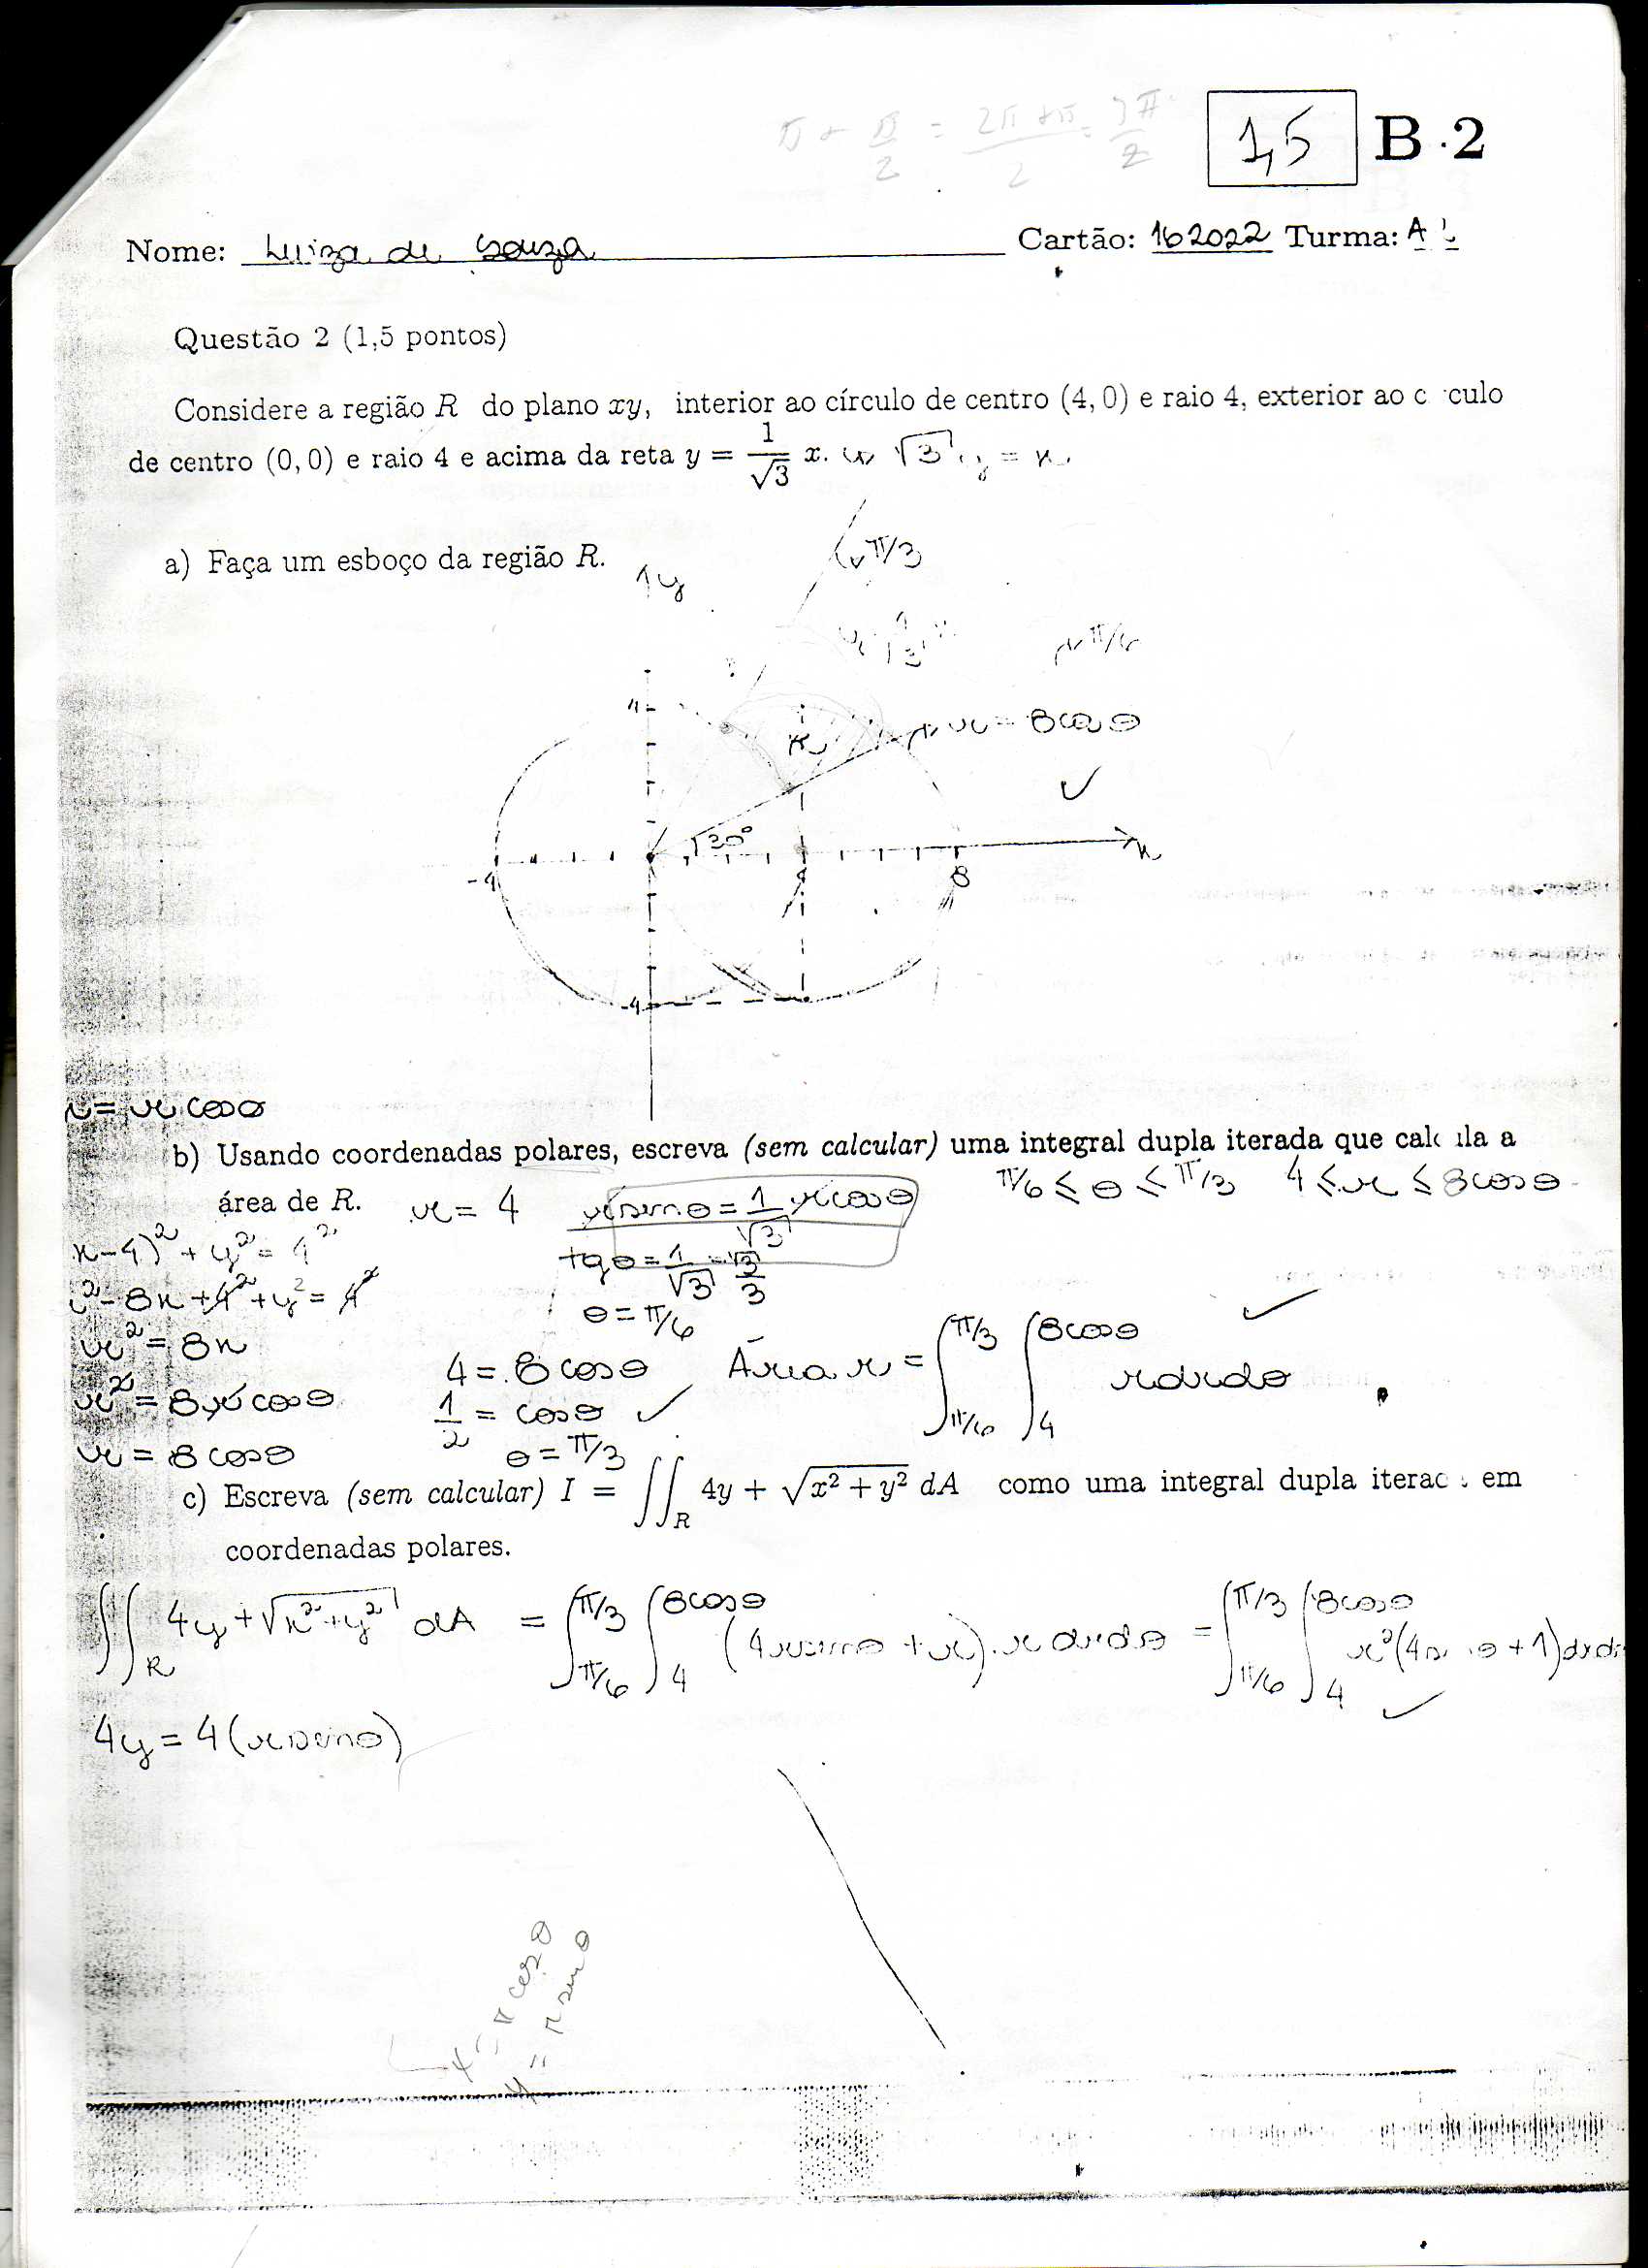 π + π/2 = (2π + π)/2 = 3π/2
1,5 B.2
Nome: Luiza de Souza Cartão: 162022 Turma: A
Questão 2 (1,5 pontos)
Considere a região R do plano xy, interior ao círculo de centro (4, 0) e raio 4, exterior ao c culo
de centro (0, 0) e raio 4 e acima da reta y = 1/√3 x. √3 y = x
a) Faça um esboço da região R.
y
π/3
π/6
4
R r = 8cosθ
30°
-4 4 8 x
-4
x = r cosθ
b) Usando coordenadas polares, escreva (sem calcular) uma integral dupla iterada que calc la a
π/6 ≤ θ ≤ π/3 4 ≤ r ≤ 8cosθ
área de R. r = 4 r senθ = 1/√3 r cosθ
x-4)² + y² = 4²
tgθ = 1/√3 = √3/3
²- 8x + 4² + y² = 4²
θ = π/6
r² = 8x
4 = 8cosθ Área r = ∫_{π/6}^{π/3} ∫_{4}^{8cosθ} rdrdθ
r² = 8r cosθ
1/2 = cosθ
r = 8cosθ
θ = π/3
c) Escreva (sem calcular) I = ∬_R 4y + √(x² + y²) dA como uma integral dupla iterad em
coordenadas polares.
∬_R 4y + √(x² + y²) dA = ∫_{π/6}^{π/3} ∫_{4}^{8cosθ} (4rsenθ + r).r drdθ = ∫_{π/6}^{π/3} ∫_{4}^{8cosθ} r²(4s θ + 1)drd
4y = 4(rsenθ)
x = r cosθ
y = r senθ